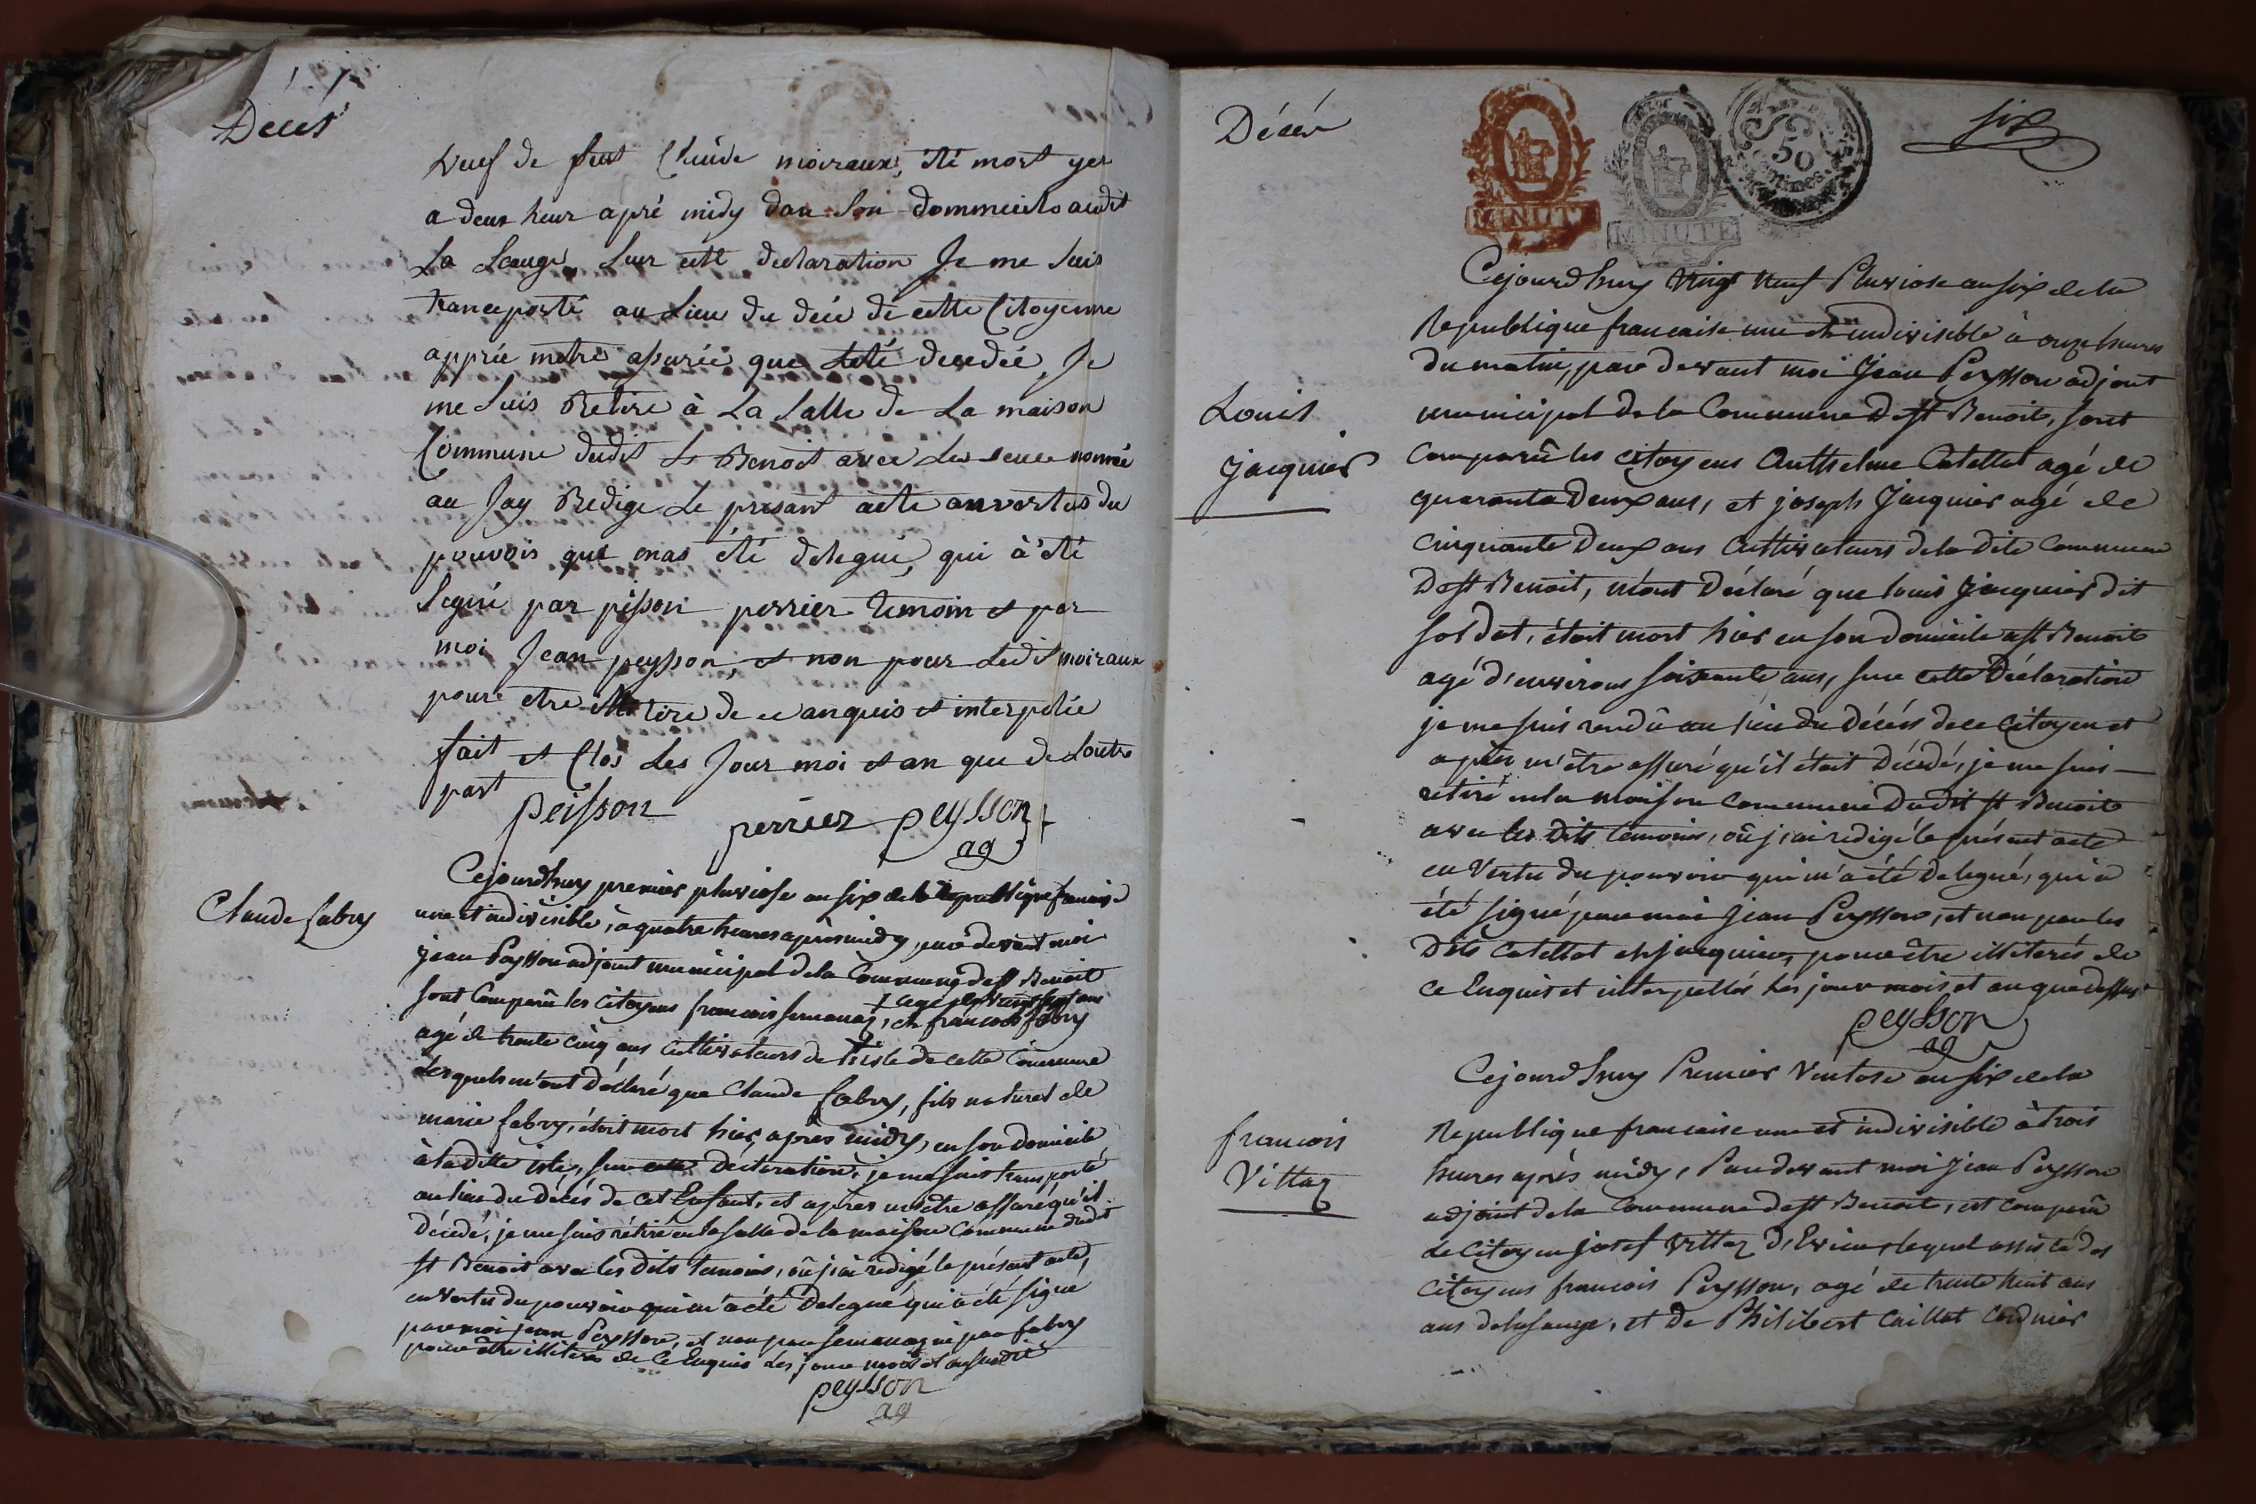 Décès
veuf de feut Claude moiraux, été mort yer
a deux heur apré midy dan Son dommicile audit
La Sauge, Sur cette declaration Je me Suis
tranceporté au Lieu du decé de cette Citoyenne
apprée metre assurée que Leté decedée, Je
me Suis Retire à La Salle de La maison
Commune dudit St Benoit avec Les
au Jay Redige Le presant acte an vertus du
pouvois que mas été delegué, qui à été
Signé par peisson perrier temoin et par
moi Jean peysson et non pour Ledit moiraux
pour etre de ce anquis et interpelée
fait et Clos Les Jour moi et an que de Loutre
part
peisson perrier peysson
ag
Claude fabry
Cejourdhuy premier pluviose an six de la Republique francaise
une et indivisible, à quatre heures après midy, par devant moi
Jean Peysson adjoint municipal de la Commune de St Benoit
sont Comparû les Citoyens francois , et francois fabry
agé de trente cinq ans Cultivateurs de L'isle de cette Commune
Lesquels m'ont Déclaré que Claude fabry, fils naturel de
marie fabry, étoit mort hier après midy, en son domicile
à la ditte isle, sur cette Déclaration, je me suis transporté
au lieu du Décès de cet Enfant, et après m'etre assuré qu'il
Décedé, je me suis rétiré en la salle de la maison Commune dudit
St Benoit avec les Dits temoins, où j'ai redigé le présent acte,
en vertu du pouvoir qui m'a été Delegué, qui a été signé
par moi jean Peysson, et non par ni par fabry
pour être illiterés de Ce Enquis Les jour mois et an susdit
peysson
ag
Décès
six
MINUTE
MINUTE
50
Centimes
Louis
Jacquier
Cejourdhuy Vingt Neuf Pluviose an six de la
Republique francaise une et indivisible à onze heures
du matin, par devant moi Jean Peysson adjoint
municipal de la Commune de St Benoit, sont
Comparû les Citoyens Anthelme Catellat agé de
quarante Deux ans, et joseph Jacquier agé de
Cinquante Deux ans Cultivateurs de la Dite Commune
De St Benoit, m'ont Déclaré que louis Jacquier dit
soldat, étoit mort hier en son domicile à St Benoit
agé d'environs soixante ans, sur cette Déclaration
je me suis rendû au lieu du Décès de ce Citoyen et
après m'être assuré qu'il était Décedé, je me suis
retiré en la maison Commune Dudit St Benoit
avec les Dits temoins, où j'ai redigé le présent acte
en vertu du pouvoir qui m'a été Delegué, qui a
été signé par moi Jean Peysson, et non par les
Dits Catellat et Jacquier, pour être illiterés de
Ce Enquis et interpellés les jour mois et an que dessus
peysson
ag
francois
Vittoz
Cejourdhuy Premier Ventose an six de la
Republique francaise une et indivisible à trois
heures après midy, Par devant moi Jean Peysson
adjoint de la Commune de St Benoit, est Comparû
le Citoyen Josef Vittoz D'Evieu, lequel assisté des
Citoyens francois Peysson, agé de trente huit ans
ans de la sauge, et De Philibert Caillat Cordnier